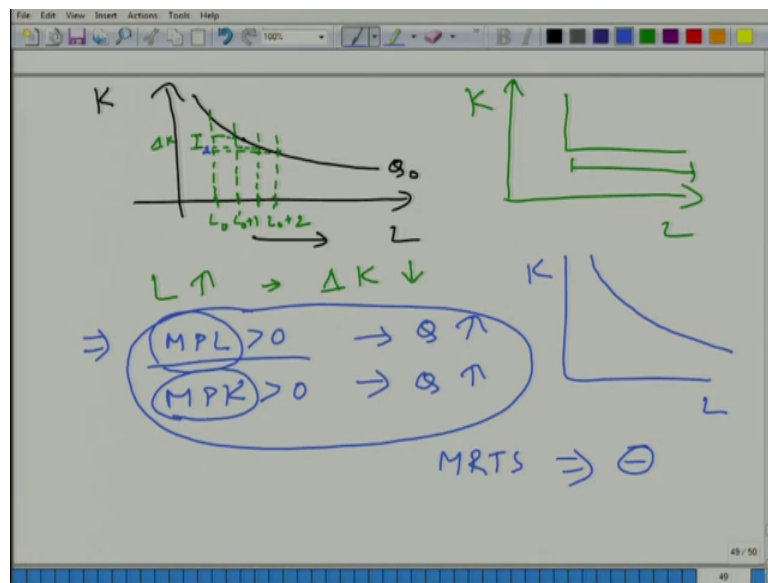 File Edit View Insert Actions Tools Help
100%
B I
K
ΔK I
Q₀
L₀ L₀+1 L₀+2
L
K
L
L ↑ → ΔK ↓
⇒ MPL > 0 → Q ↑
MPK > 0 → Q ↑
K
L
MRTS ⇒ ⊖
49 / 50
49